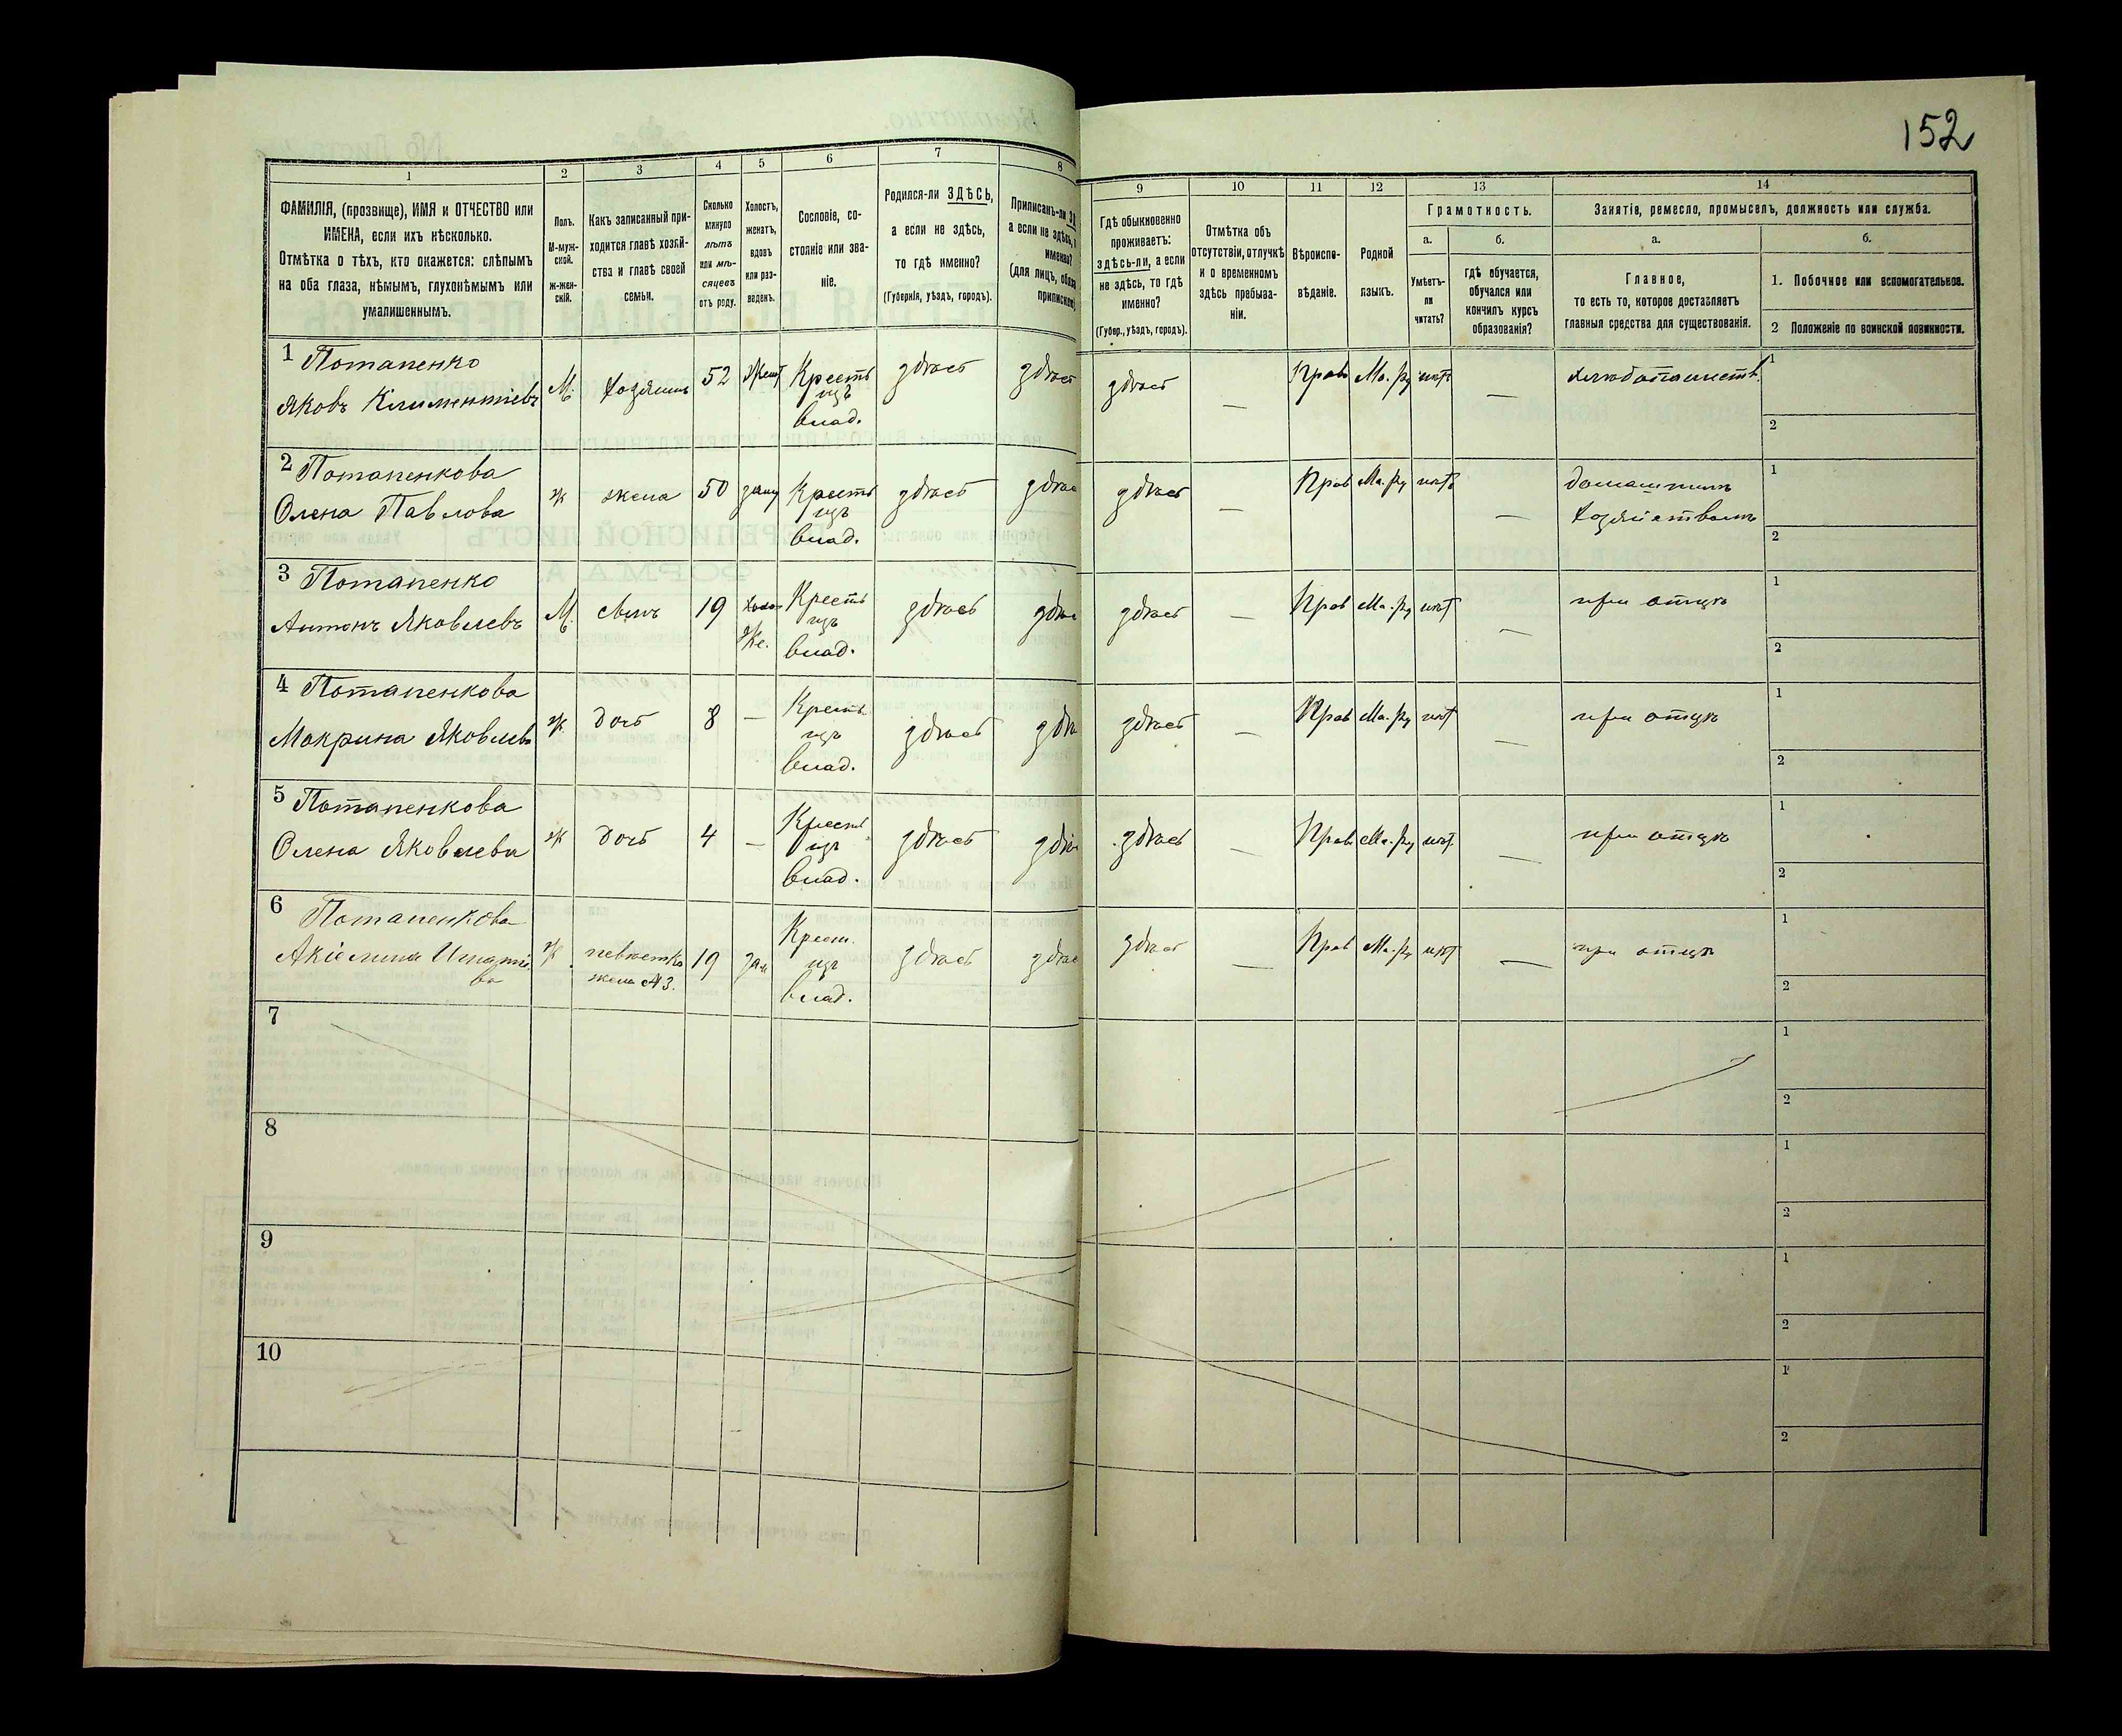 152
1
2
3
4
5
6
7
8
9
10
11
12
13
14
ФАМИЛІЯ, (прозвище), ИМЯ и ОТЧЕСТВО или
ИМЕНА, если ихъ нѣсколько.
Отмѣтка о тѣхъ, кто окажется: слѣпымъ
на оба глаза, нѣмымъ, глухонѣмымъ или
умалишеннымъ.
Полъ.
М-муж-
ской.
Ж-жен-
скій.
Какъ записанный при-
ходится главѣ хозяй-
ства и главѣ своей
семьи.
Сколько
минуло
лѣтъ
или мѣ-
сяцевъ
отъ роду.
Холостъ,
женатъ,
вдовъ
или раз-
веденъ.
Сословіе, со-
стояніе или зва-
ніе.
Родился-ли ЗДѢСЬ,
а если не здѣсь,
то гдѣ именно?
(Губернія, уѣздъ, городъ).
Приписанъ-ли
а если не здѣсь,
именно?
(для лицъ,
Гдѣ обыкновенно
проживаетъ:
здѣсь-ли, а если
не здѣсь, то гдѣ
именно?
(Губер., уѣздъ, городъ).
Отмѣтка объ
отсутствіи, отлучкѣ
и о временномъ
здѣсь пребыва-
ніи.
Вѣроиспо-
вѣданіе.
Родной
языкъ.
Грамотность.
а.
Умѣетъ-
ли
читать?
б.
Гдѣ обучается,
обучался или
кончилъ курсъ
образованія?
Занятіе, ремесло, промыселъ, должность или служба.
а.
Главное,
то есть то, которое доставляетъ
главныя средства для существованія.
б.
1. Побочное или вспомогательное.
2 Положеніе по воинской повинности.
1 Потапенко
Яковъ Климентіевъ
М. Хозяинъ 52 Жент Крестъ
изъ
влад.
здѣсь здѣсь здѣсь — Прав Ма.ру нѣтъ — хлѣбопашеств. 1
2
2 Потапенкова
Олена Павлова
ж жена 50 заму Крестъ
изъ
влад.
здѣсь здѣс здѣсь — Прав Ма.ру нѣтъ — домашнимъ
хозяйствомъ
1
2
3 Потапенко
Антонъ Яковлевъ
М. сынъ 19 Холос
Же.
Крестъ
изъ
влад.
здѣсь здѣс здѣсь — Прав Ма.ру нѣт — при отцѣ 1
2
4 Потапенкова
Макрина Яковлева
ж дочь 8 — Крестъ
изъ
влад.
здѣсь здѣ здѣсь — Прав Ма.ру нѣт — при отцѣ 1
2
5 Потапенкова
Олена Яковлева
ж дочь 4 — Крестъ
изъ
влад.
здѣсь здѣ здѣсь — Прав Ма.ру нѣт — при отцѣ 1
2
6 Потапенкова
ж невѣстка
жена №3.
19 зам Крест.
изъ
влад.
здѣсь здѣс здѣсь — Прав Ма.ру нѣт — при отцѣ 1
2
7 1
2
8 1
2
9 1
2
10 1
2